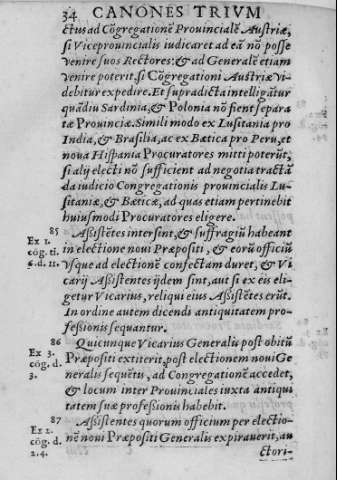 34 CANONES TRIVM
ctus ad Cõgregationẽ Prouincialẽ Austriæ,
si Viceprouincialis iudicaret ad eã nõ posse
venire suos Rectores: & ad Generalẽ etiam
venire poterit, si Cõgregationi Austriæ vi-
debitur expedire. Et supradicta intelligãtur
quãdiu Sardinia, & Polonia nõ fient separa
tæ Prouinciæ. Simili modo ex Lusitania pro
India, & Brasilia, ac ex Bætica pro Peru, et
noua Hispania Procuratores mitti poterũt,
si alij electi nõ sufficient ad negotia tractã
da iudicio Congregationis prouincialis Lu-
sitaniæ, & Bæticæ, ad quas etiam pertinebit
huiusmodi Procuratores eligere.
85
Ex 1.
cõg. ti.
6. d. 11.
Assistẽtes intersint, & suffragiũ habeant
in electione noui Præpositi, & eorũ officiũ
vsque ad electionẽ confectam duret, & Vi
carij Assistentes ijdem sint, aut si ex eis eli-
getur Vicarius, reliqui eius Assistẽtes erũt.
In ordine autem dicendi antiquitatem pro-
fessionis sequantur.
86
Ex 3.
cõg. d.
3.
Quicunque Vicarius Generalis post obitũ
Præpositi extiterit, post electionem noui Ge
neralis sequẽtis, ad Congregationẽ accedet,
& locum inter Prouinciales iuxta antiqui
tatem suæ professionis habebit.
87
Ex 2.
cõg. d.
24.
Assistentes quorum officium per electio-
nẽ noui Præpositi Generalis expirauerit, au
ctori-